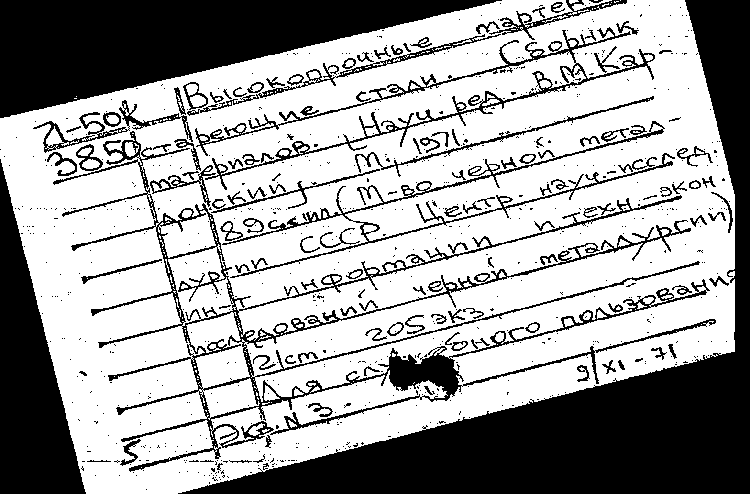 Л-50к Высокопрочные мартен
3850 стареющие стали. Сборник
материалов. [Науч. ред. В.М. Кар-
донский]. М., 1971.
89 с. с ил. (М-во черной метал-
лургии СССР Центр. науч.-исслед.
ин-т информации и техн.-экон.
последований черной металлургии)
21 ст. 205 экз.
Для служебного пользования
Экз. N 3.
5 9/XI-71